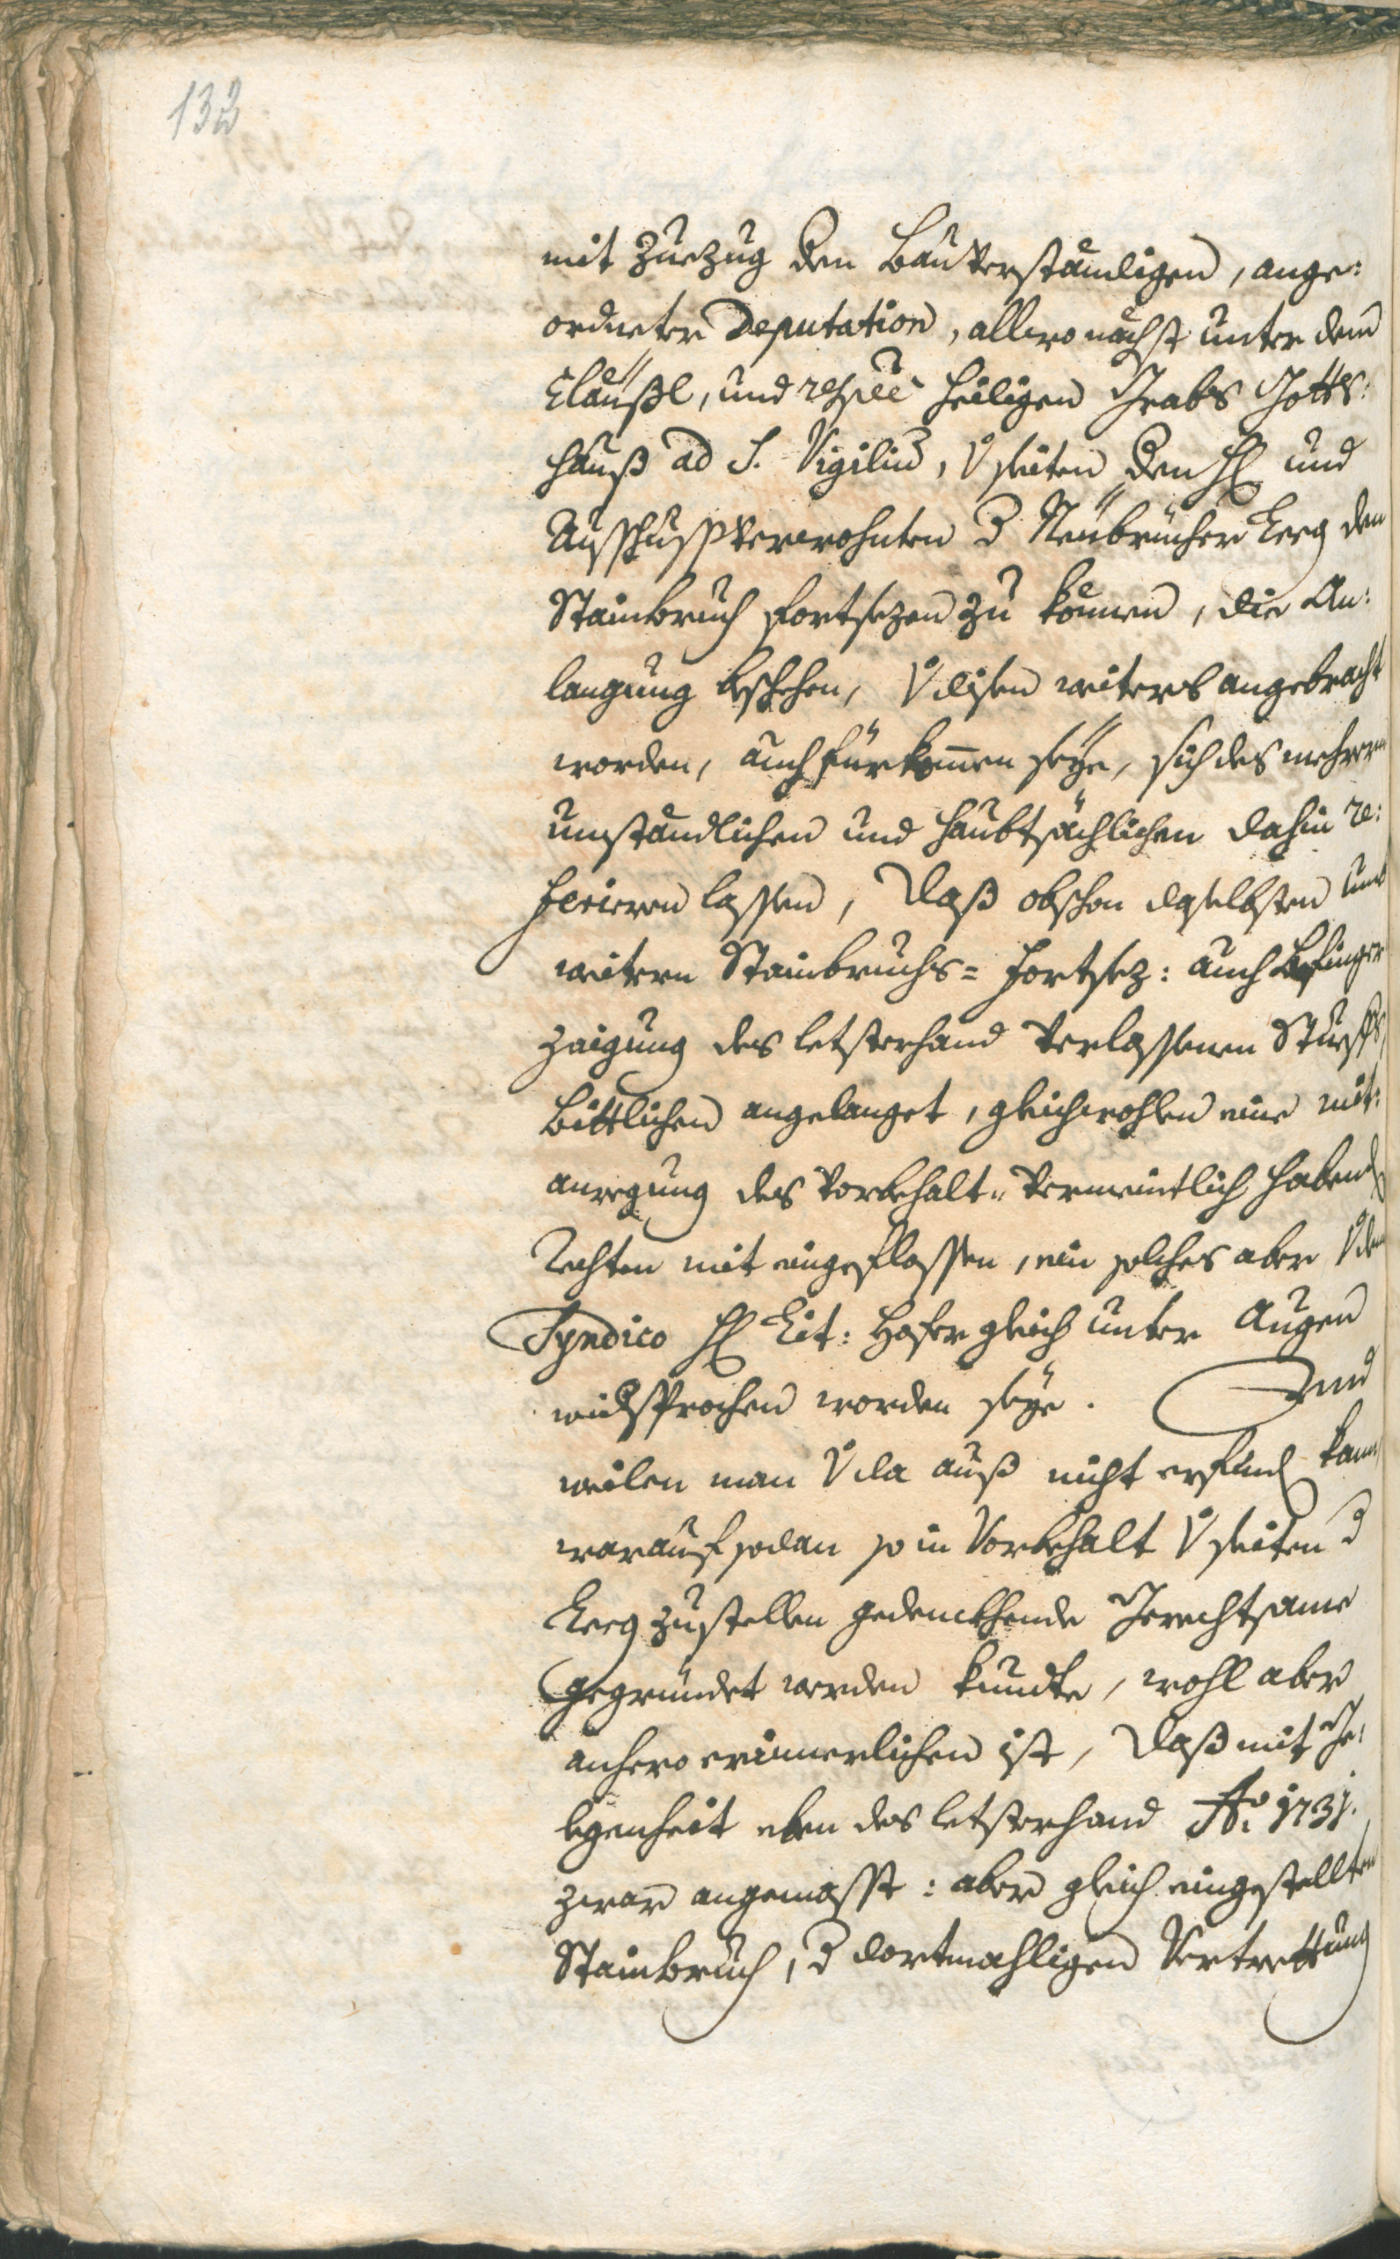 132
mit Zuezug den Bauverständigen, ange:
ordneter Deputation, allwo nächst unter dem
Cläußl, und respvè heiligen Grabs Gotts:
hauß ad S. Vigiliū, v̊ seiten den H und
Ausschussverwohnten d Neubrucher Leeg den
Stainbruch fortsezen zu können, die An:
langung beschehen, v̊ disen weiters angebracht
worden, auch fürkom̄en seÿe, sich des mehrern
umständlichen und haubtsächlichen dahin re:
ferieren lassen, daß obschon daselbsten umb
weitern Stainbruchs= fortsez: auch
zaigung des letsterhand verlassenen
bittlichen angelanget, gleichwohlen eine mit:
anregung des vorbehalt= vermeintlich habend
Rechten mit eingeflossen, ein solches aber v̊ dem
Syndico H Lit: Hofer gleich unter Augen
widsprochen worden seÿe. Und
weilen man v̊ da auß nicht erfind kann,
warauf sodan so in Vorbehalt v̊ seiten d
Leeg zustellen gedenckhende Gerechtsame
gegründet werden kundte, wohl aber
anhero erinnerlichen ist, daß mit Ge:
legenheit eben des letsterhand Ao. 1731.
zwar angemasst: aber gleich eingestellten
Stainbruch, d dortmahligen Vertrettung